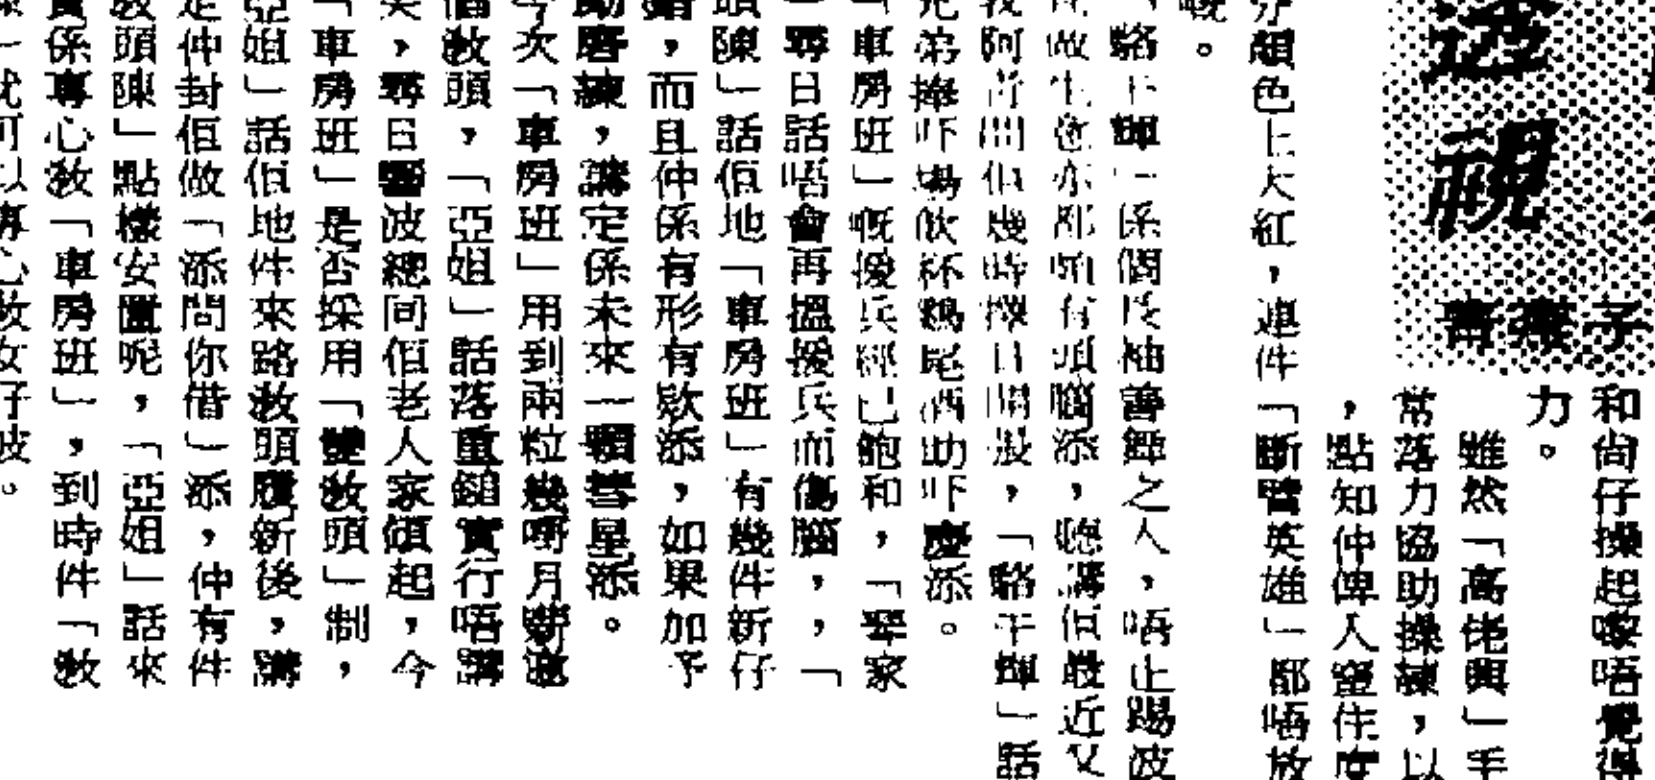 透視
和尚仔操起嚟唔覺得
力。
雖然「高佬興」手
常落力協助操練,以
,點知仲俾人窒住度
顏色上大紅,連件「斷臂英雄」都唔放
嘅。
駱干輝」係個長袖善舞之人,唔止踢波
做生意亦都頗有頭腦添,聽講佢最近又
我阿肯問佢幾時擇日開張,「駱干輝」話
兄弟捧吓場飲杯鷄尾酒助吓慶添。
「車房班」嘅援兵經已飽和,「翠家
尋日話唔會再搵援兵而傷腦,,「
頭陳」話佢地「車房班」有幾件新仔
,而且仲係有形有欵添,如果加予
勤磨練,講定係未來一顆彗星添。
今次「車房班」用到兩粒幾嘢月薪邀
個教頭,「亞姐」話落重鎚實行唔講
笑,尋日響波總同佰老人家傾起,今
「車房班」是否採用「雙教頭」制,
亞姐」話佢地件來路教頭履新後,講
定仲封佢做「添問你借」添,仲有件
教頭陳」點樣安置呢,「亞姐」話來
實係專心教「車房班」,到時件「教
就可以專心教女仔波。